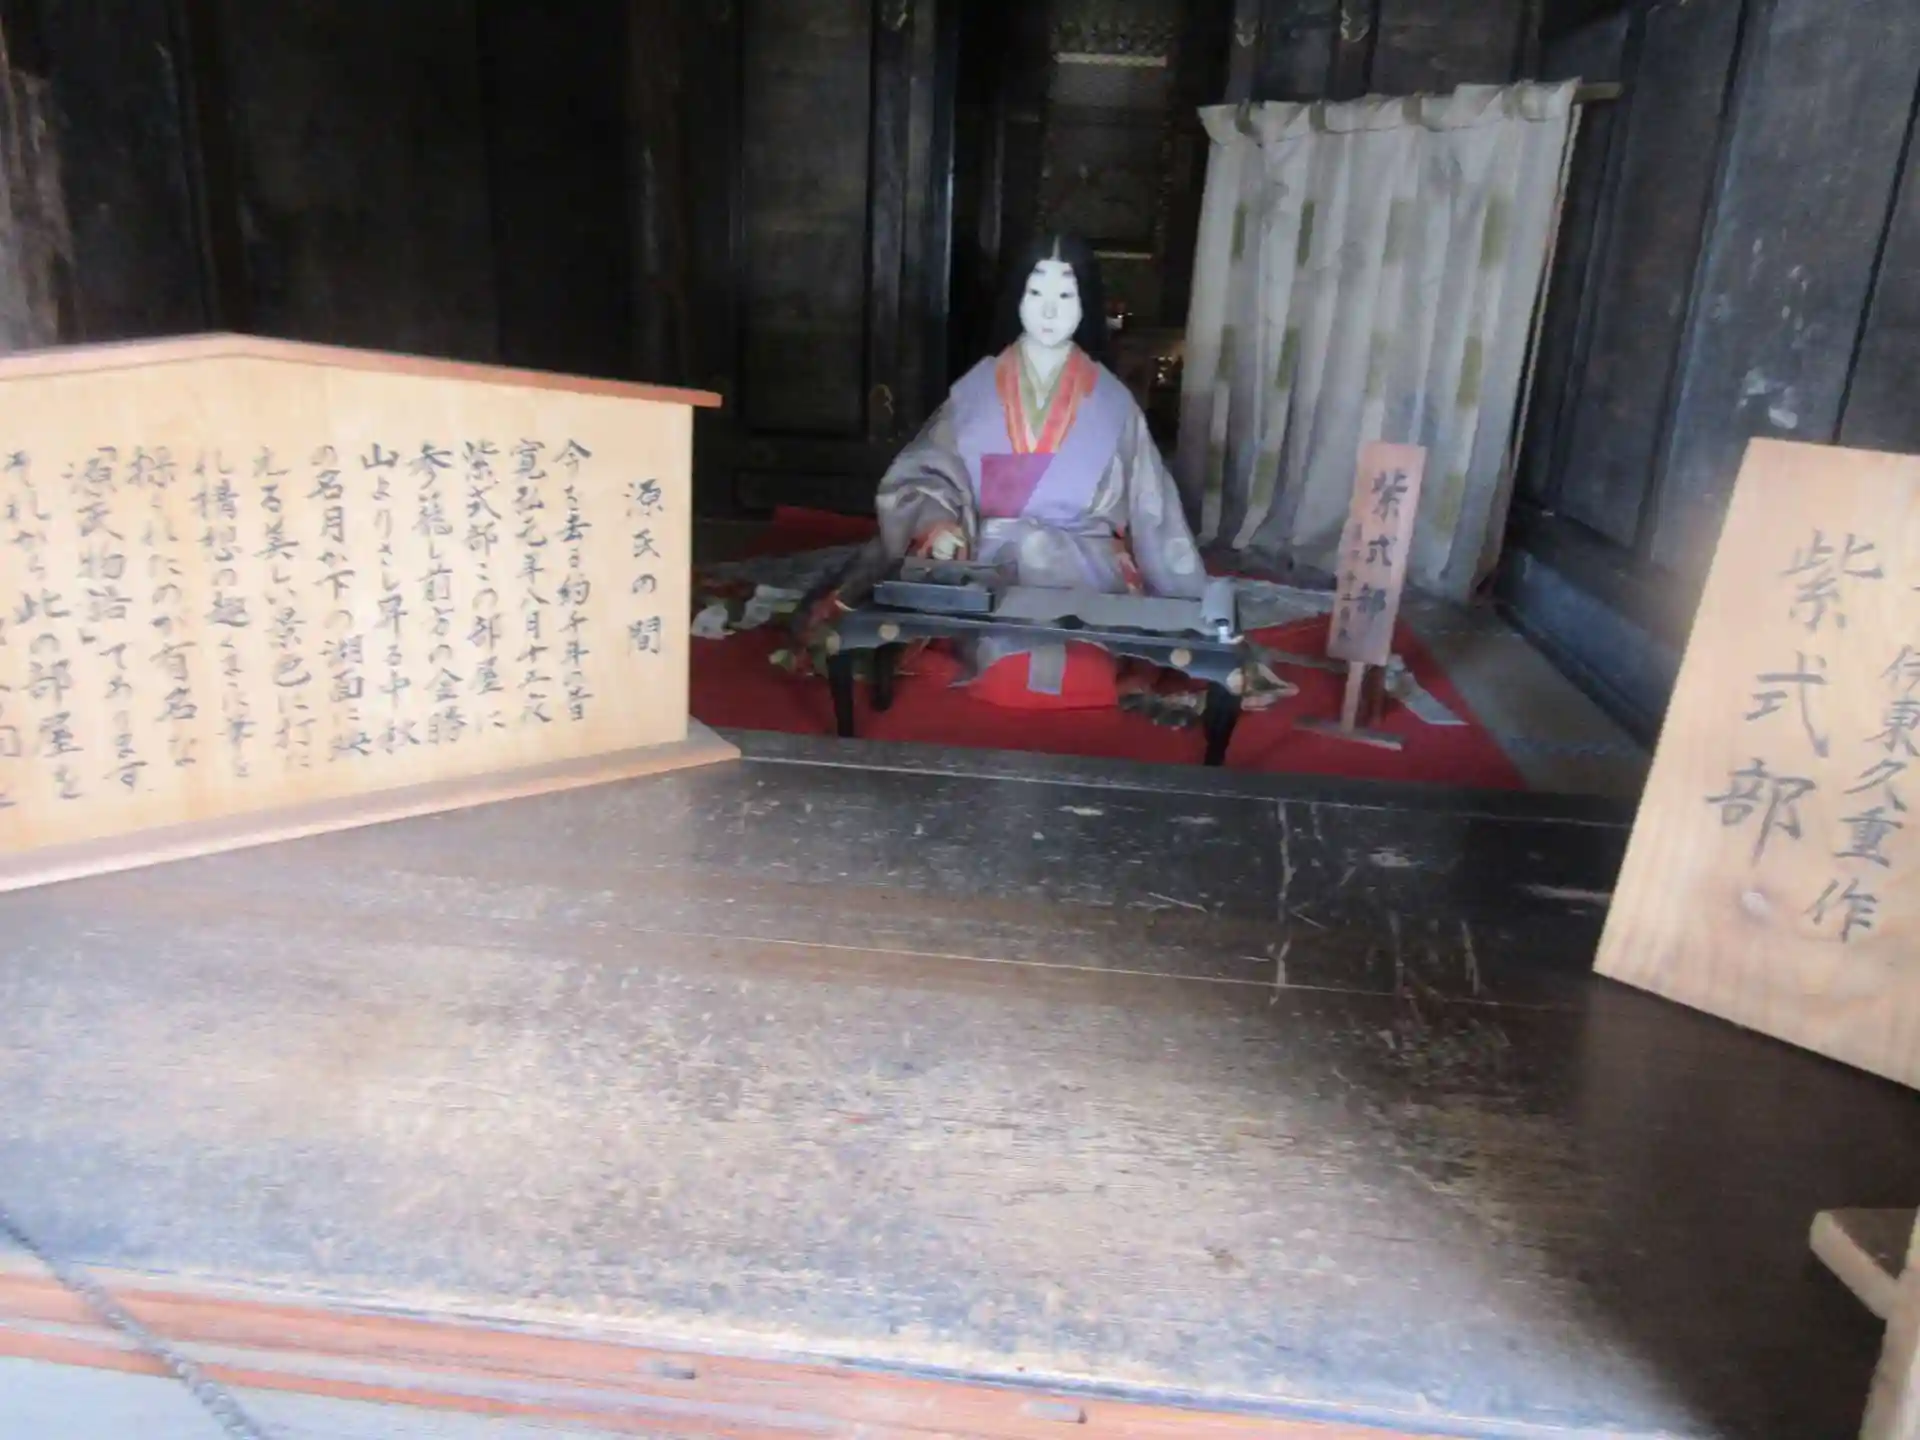 源氏の間
今を去る約千年の昔
寛弘元年八月十五夜
紫式部この部屋に
参籠し前方の金勝
山よりさし昇る中秋
の名月が下の湖面に映
える美しい景色に打た
れ構想の趣くまに筆を
操られたのが有名な
「源氏物語」であります
それから此の部屋を
紫式部
紫式部
伊東久重作